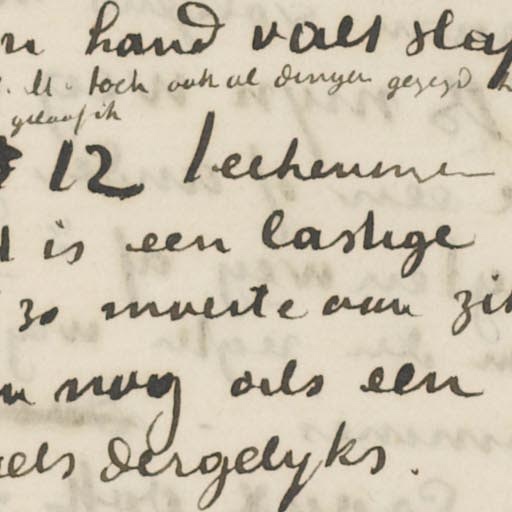 n hand valt slap
U toch ook al dingen gezegd
geloof ik
12 teekeningen
is een lastige
zo moeite aan zit
nog als een
els dergelyks.